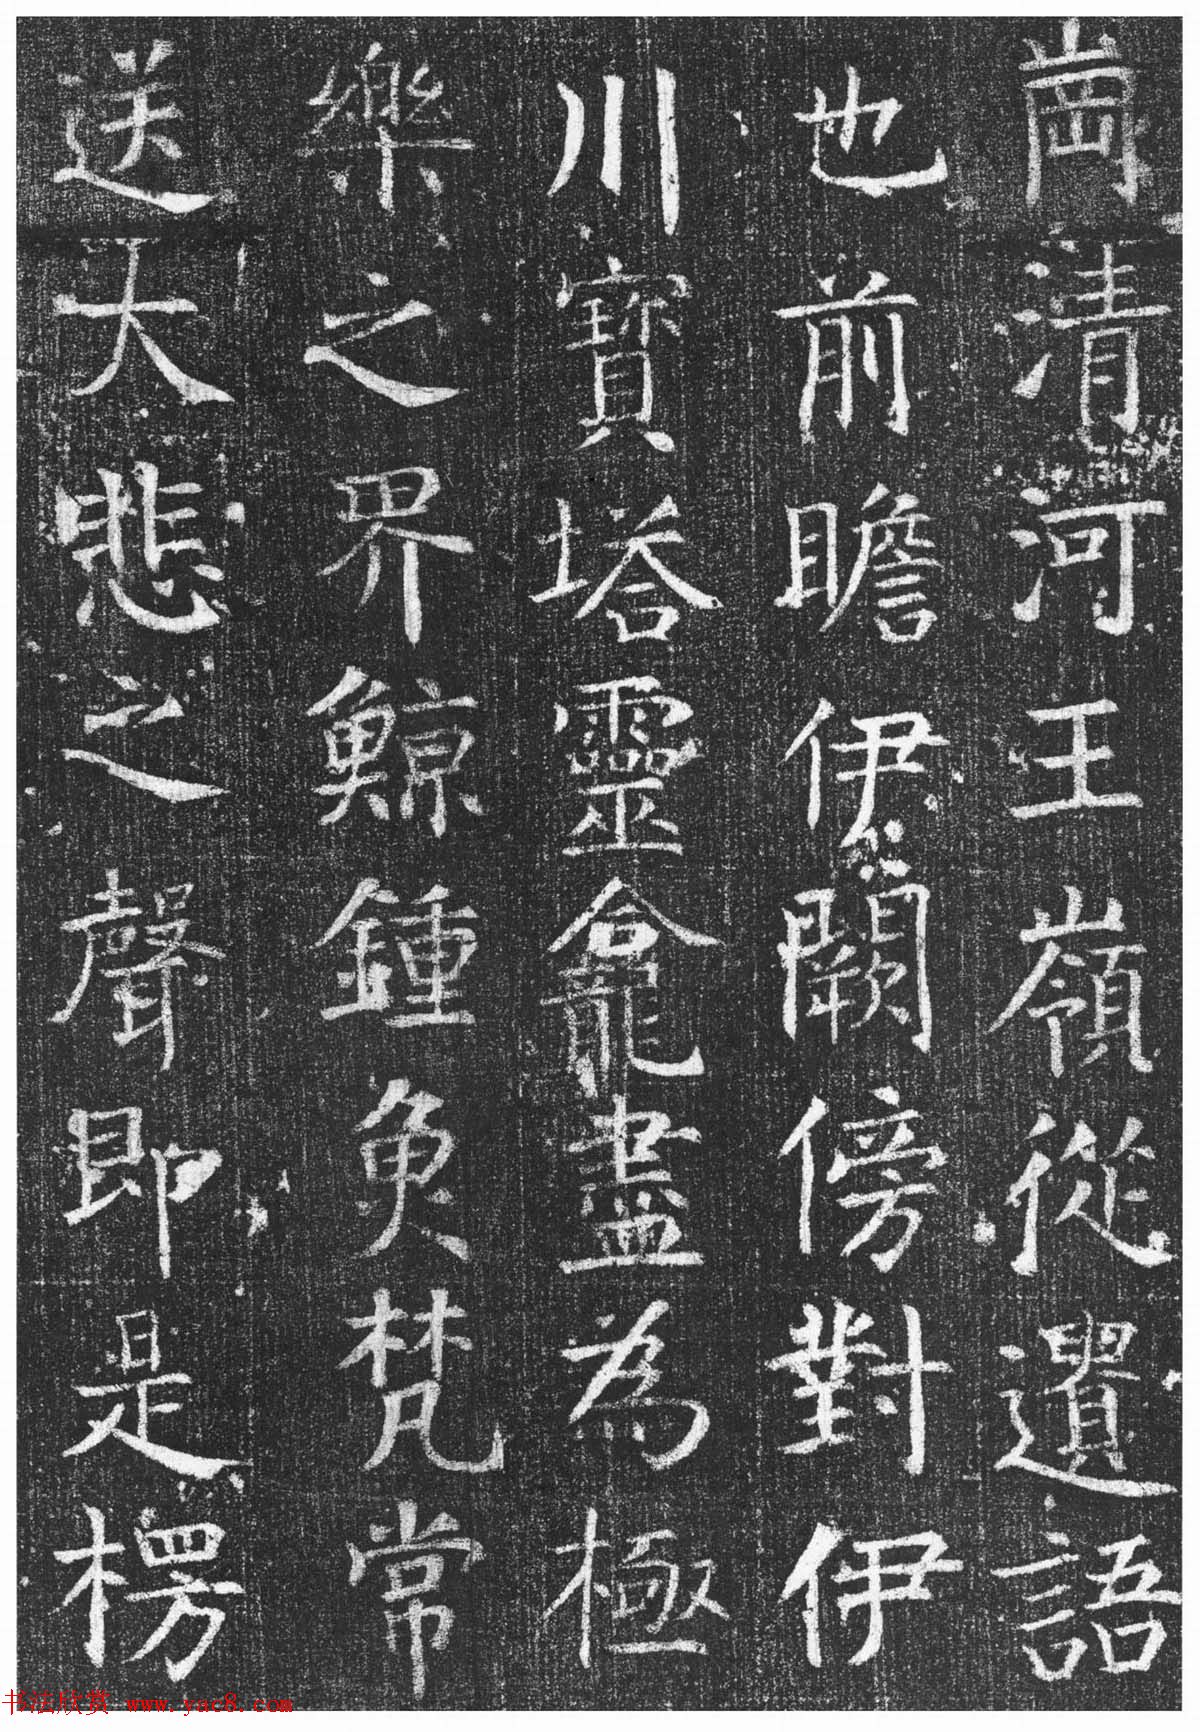 崗清河王嶺從遺語
也前瞻伊闕傍對伊
川寶塔靈龕盡為極
樂之界鯨鍾魚梵常
送大悲之聲即是楞
书法欣赏 www.yac8.com